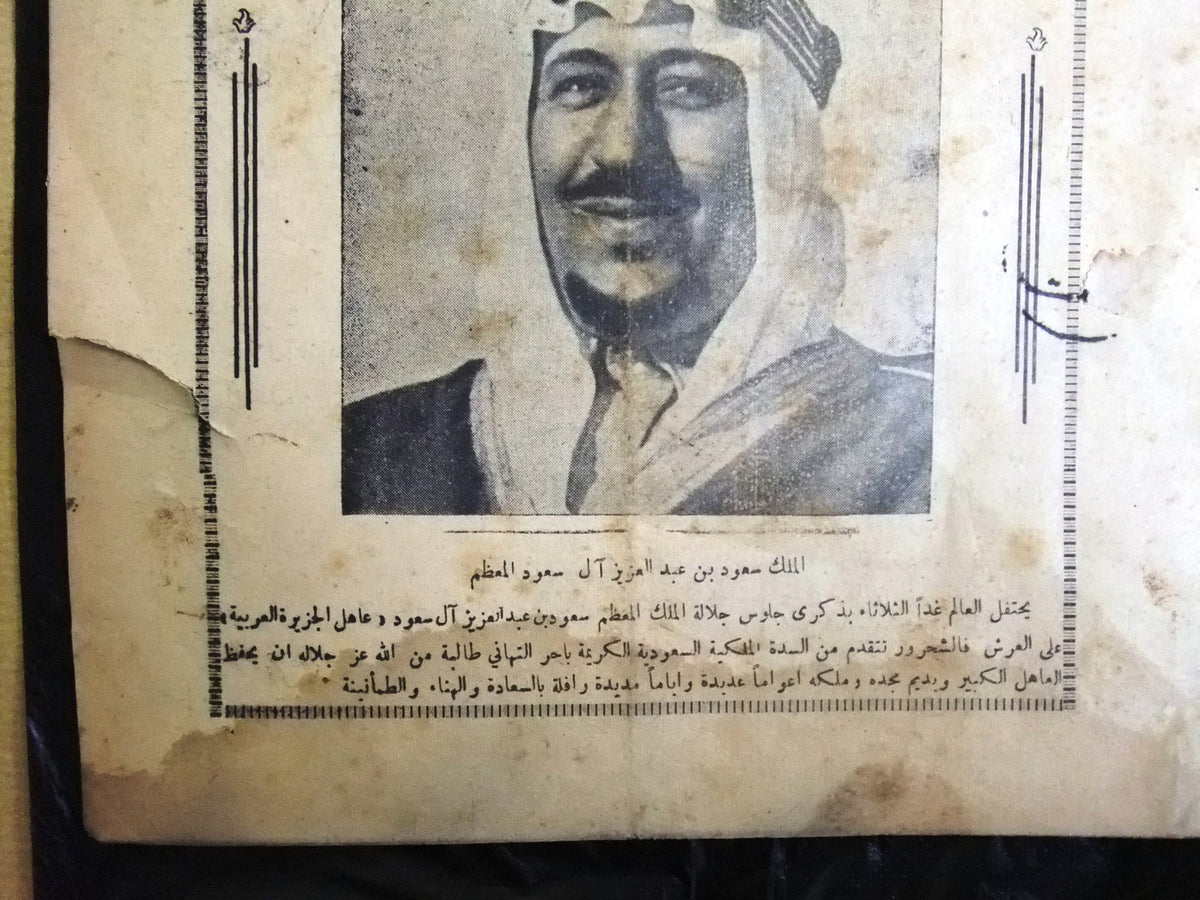 الملك سعود بن عبد العزيز آل سعود المعظم
يحتفل العالم غداً الثلاثاء بذكرى جلوس جلالة الملك المعظم سعود بن عبد العزيز آل سعود « عاهل الجزيرة العربية »
على العرش فالشحرور تتقدم من السدة الملكية السعودية الكريمة باحر التهاني طالبة من الله عز جلاله ان يحفظ
العاهل الكبير ويديم مجده وملكه اعواماً عديدة واياماً مديدة رافلة بالسعادة والهناء والطمأنينة